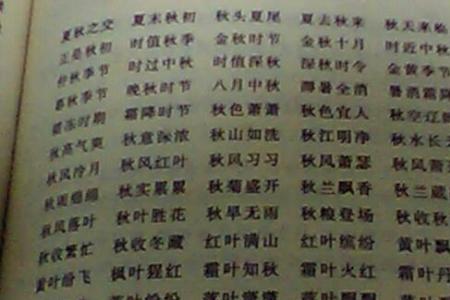 夏秋之交 夏末秋初 秋头夏尾 夏去秋来 秋天来临
正是秋初 时值秋季 金秋时节 金秋十月 时近中秋
仲秋季节 时过中秋 时值深秋 深秋时令 金黄季节
暮秋季节 晚秋时节 八月中秋 溽暑全消 暑消霜降
霜冻时期 霜降时节 秋色萧萧 秋色宜人 秋空辽
秋高气爽 秋意深浓 秋山如洗 秋江明净 秋水长天
秋风冷月 秋风红叶 秋风习习 秋风萧瑟 秋风萧
秋雨绵绵 秋实累累 秋菊盛开 秋兰飘香 秋兰
秋风落叶 秋叶胜花 秋旱无雨 秋粮登场 秋收秋
秋收繁忙 秋收冬藏 红叶满山 红叶缤纷 黄叶飘
黄叶纷飞 枫叶猩红 霜叶知秋 霜叶火红 霜叶丹
落叶纷纷 落叶